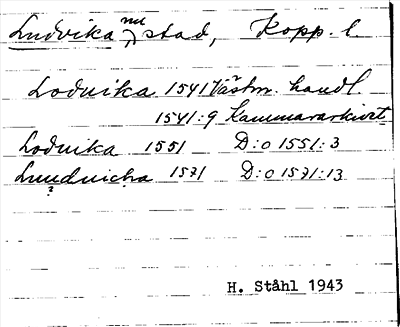 Ludvika nu) stad, Kopp. l
Lodvika 1541 Västm. handl.
1541:9 Kammararkivet
Lodvika 1551 D:o 1551:3
Luudvicha 1571 D:o 1571:13
?
H. Ståhl 1943